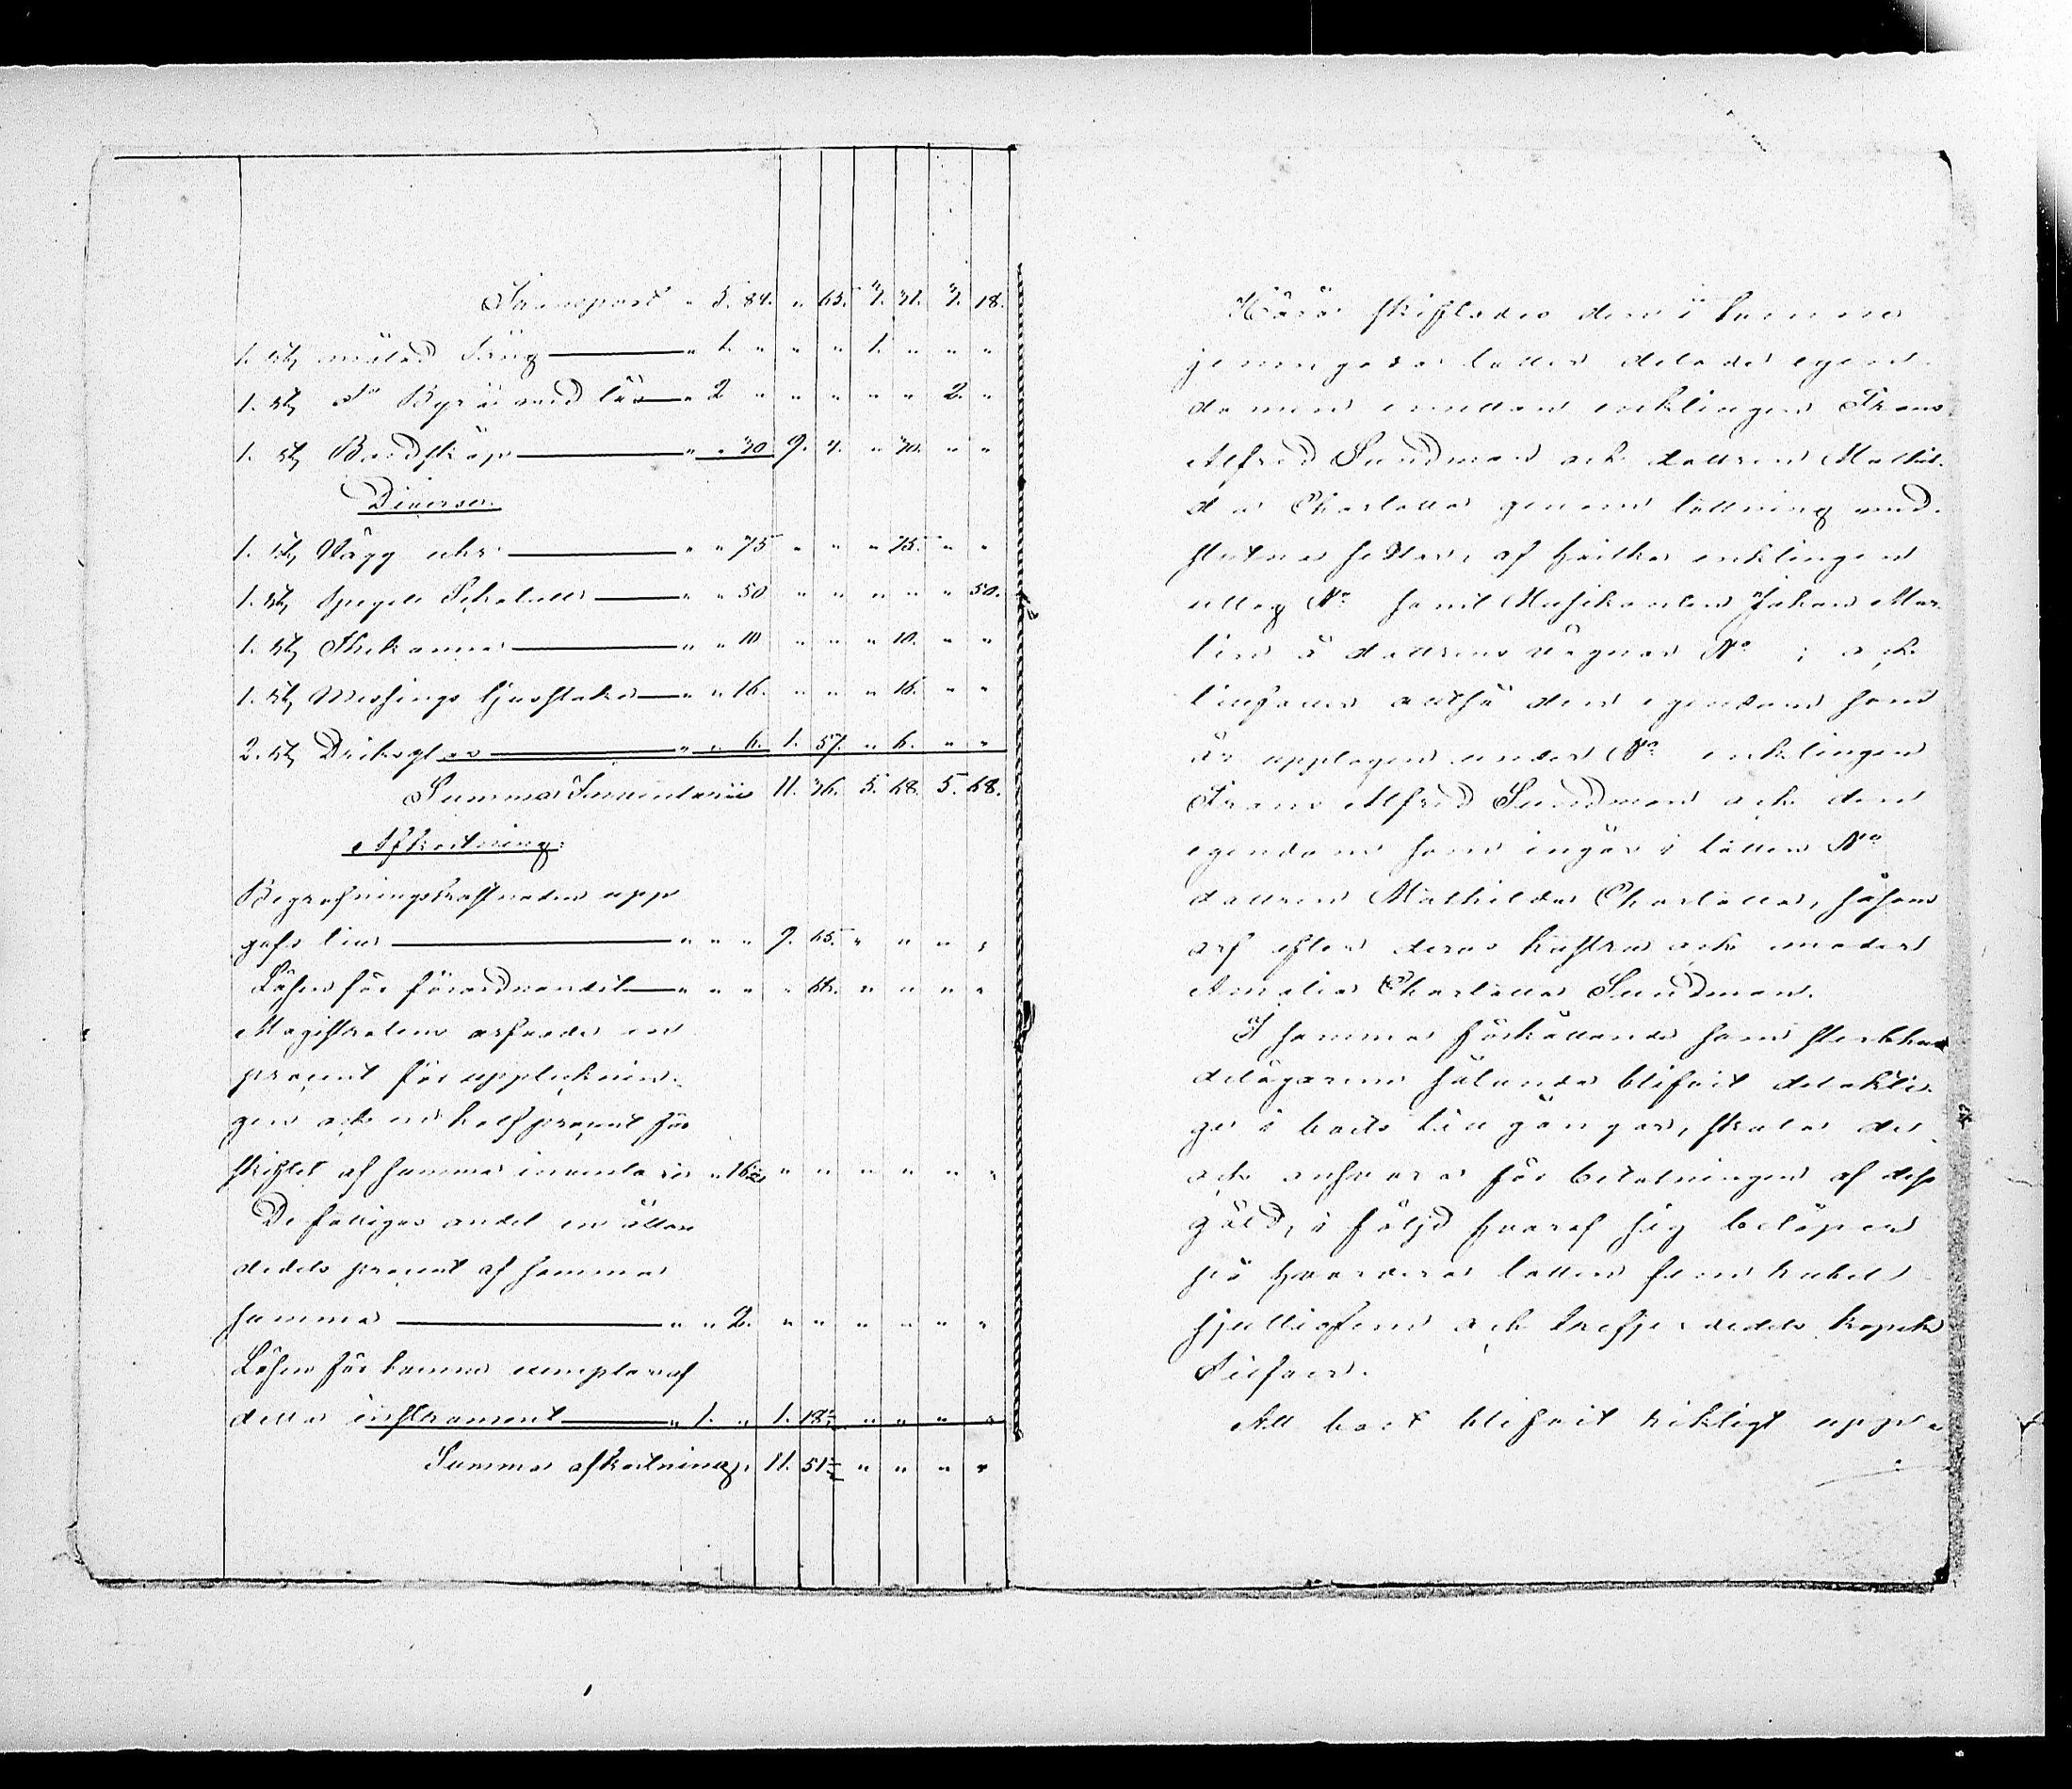 Transport " 5. 84. " 65. 3. 31. 3. 18.
1. st. målad Säng " 1. " " " 1. " " "
1. st. do Byrå med lås " 2 " " " " " 2. "
1. st. Bordskåp " " 30 9. 4. " 30. " "
Diverse.
1. st. Vägg uhr " " 75 " " " 75. " "
1. st. Spegel Schatull " " 50 " " " " " 50.
1. st. Thekanna " " 10 " " " 10. " "
1. st. Messings ljusstake " " 16. " " " 16. " "
2. st. Driksglas " " 6. 1. 57. " 6. " "
Summa Inventarii 11. 36. 5. 68. 5. 68.
Afkortning:
Begrafningskostnaden upp
gafs till " " " 9. 65. " " " "
Lösen för förordnandet " " " " 66. " " " "
Magistratens arfvode en
procent för uppteknin-
gen och en half procent för
skiftet af summa inventarii " 16 " " " " " "
De fattigas andel en åtton
dedels procent af samma
summa " " 2. " " " " " "
Lösen för tvenne exemplar af
detta instrument " 1. " 1. 18 " " " "
Summa afkortning 11. 51 " " " "
Härå skiftades den i tvenne
jemngoda lotter delade egen-
domen emellan enklingen Frans
Alfred Sundman och dottren Mathil-
da Charlotta genom lottning med
slutna sedlar, af hvilka enklingen
uttog No samt Musikanten Johan Mar
lin å dottrens vägnar No ; och
tillföll altså den egendom som
är upptagen under No enklingen
Frans Alfred Sundman och den
egendom som ingår i lotten No
dottren Mathilda Charlotta, såsom
arf efter deras hustru och moder
Amalia Charlotta Sundman.
I samma förhållande som sterbhus
delägarena sålunda blifvit delakti-
ge i boets tillgångar, skola de
ock ansvara för betalningen af dess
gäld, i följd hvaraf sig belöper
på hvardera lotten fem rubel
sjuttiofem och trefjerdedels kopek
Silfver.
Att boet blifvit riktigt uppte